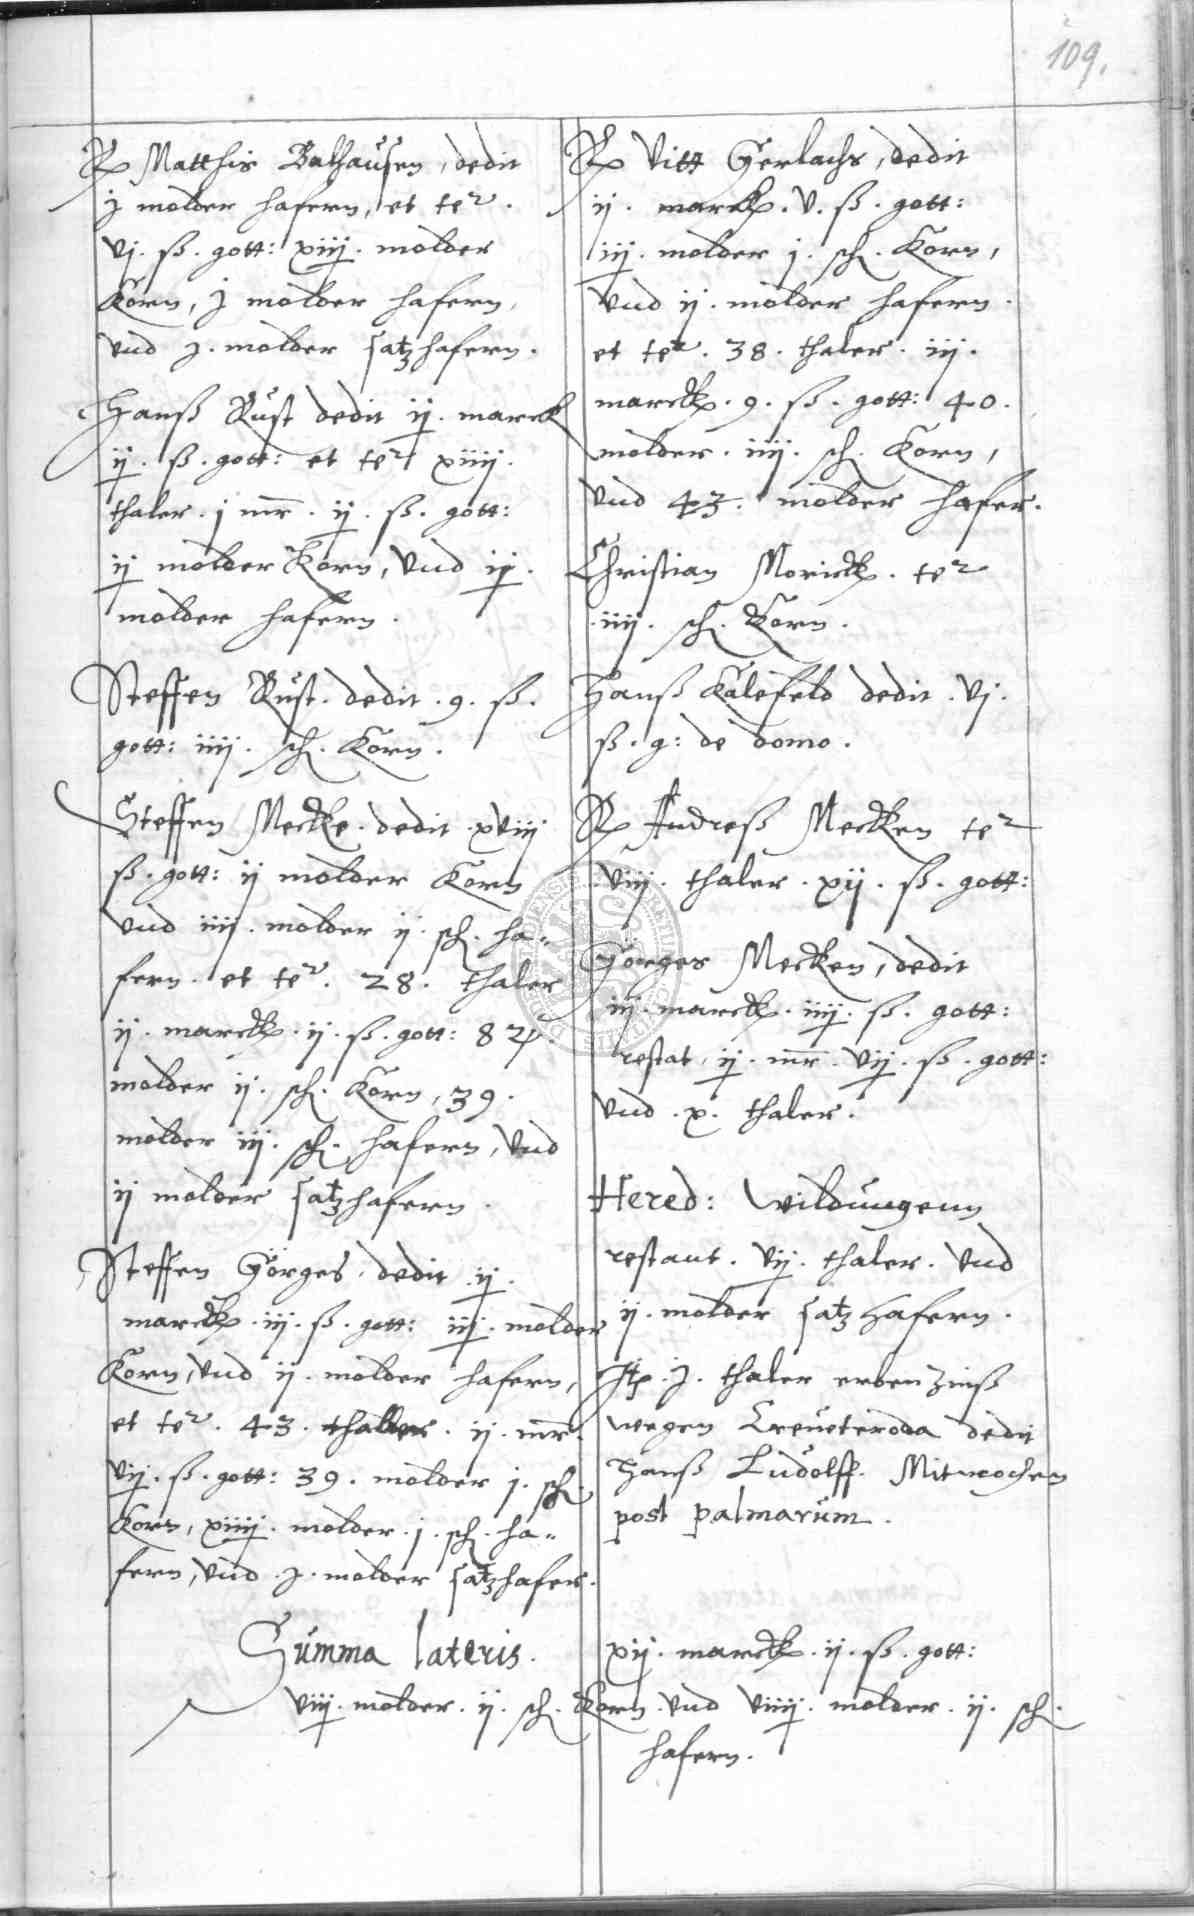 109.
Rp Matthis Balhausen, dedit
j molder hafern, et ter.
vj. ß. gott: xiij. molder
Korn, j molder hafern,
vnd j. molder satzhafern.
Hanß Rust dedit ij. marck
ij. ß. gott: et ter xiiij.
thaler. j mr. ij. ß. gott:
ij molder Korn, vnd ij.
molder hafern.
Steffen Rust. dedit. 9. ß.
gott: iiij. sch. Korn.
Steffen Mecke. dedit. xviij
ß. gott: ij molder Korn
vnd iiij. molder ij. sch. ha-
fern. et ter. 28. thaler
ij. marck. ij. ß. gott: 82.
molder ij. sch. Korn, 39.
molder iij. sch. hafern, vnd
ij molder satzhafern.
Steffen Görges. dedit ij.
marck. iij. ß. gott: iij. molder
Korn, vnd ij. molder hafern,
et ter. 43. thaler. ij. mr.
vij. ß. gott: 39. molder j. sch.
Korn, xiiij. molder. j. sch. ha-
fern, vnd. j. molder satzhafer.
Rp Vitt Gerlachs, dedit
ij. marck. v. ß. gott:
iij. molder j. sch. Korn,
vnd ij. molder hafern.
et ter. 38. thaler. iij.
marck. 9. ß. gott: 40.
molder. iiij. sch. Korn,
vnd 43. molder hafer.
Christian Morick. ter
iiij. sch. Korn.
Hanß Kalefeld dedit. vj.
ß. g: de domo.
Rp Andreß Mecken ter
viij. thaler. xij. ß. gott:
Görges Mecken, dedit
iij. marck. iiij. ß. gott:
restat. ij. mr. vij. ß. gott:
vnd. x. thaler.
Hered: Wildungenn
restant. vij. thaler. vnd
ij. molder satzhafern.
Itp. j. thaler erbenzinß
wegen Creueteroda dedit
Hanß Ludolff. Mitwochen
post palmarum.
Summa lateris. xij. marck. ij. ß. gott:
viij. molder. ij. sch. Korn. vnd viiij. molder. ij. sch.
hafern.